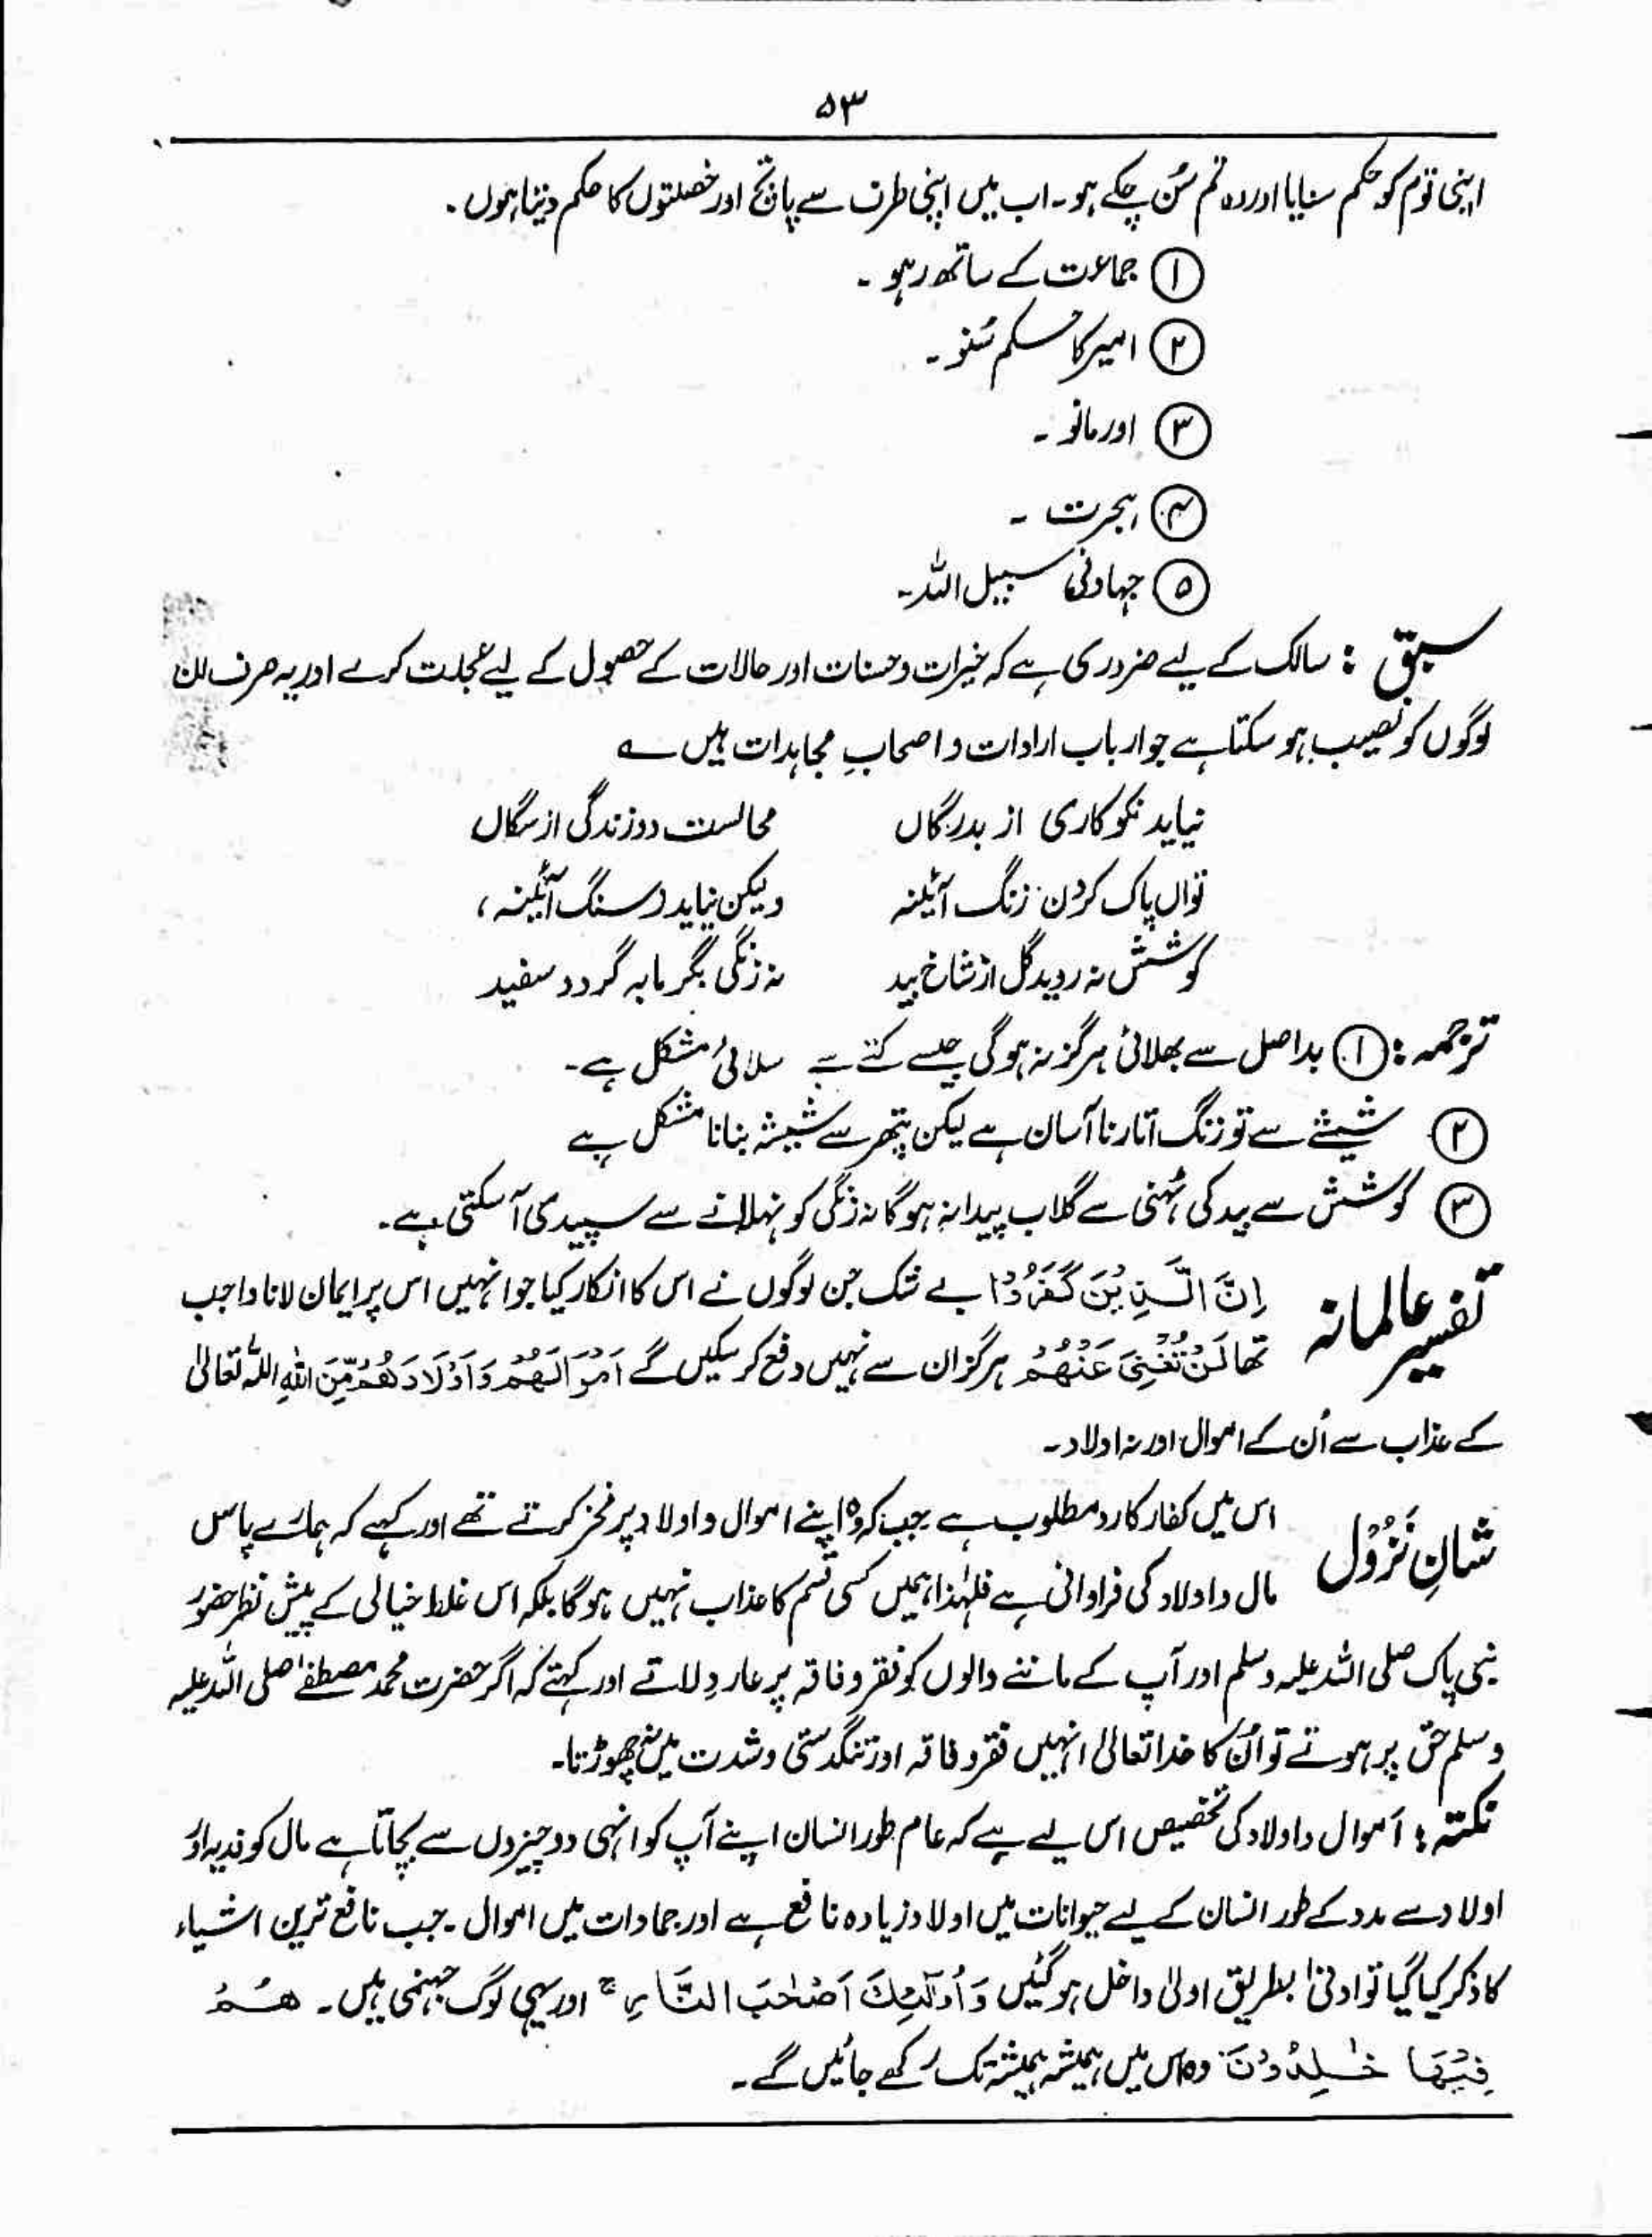 ۵۳
اپنی قوم کو حکم سنایا اور وہ تم سُن چکے ہو۔ اب میں اپنی طرف سے پانچ اور خصلتوں کا حکم دیتا ہوں۔
① جماعت کے ساتھ رہو۔
② امیر کا حکم سُنو۔
③ اور مانو۔
④ ہجرت۔
⑤ جہاد فی سبیل اللہ۔
سبق : سالک کے لیے ضروری ہے کہ خیرات و حسنات اور حالات کے حصول کے لیے عجلت کرے اور یہ صرف ان
لوگوں کو نصیب ہو سکتا ہے جو ارباب ارادات و اصحابِ مجاہدات ہیں ؎
نیاید نکو کاری از بدرگاں محالست دوزندگی از سگال
تواں پاک کردن زنگ آئینہ ولیکن نیاید ز سنگ آئینہ،
کوشش نہ روید گل از شاخ بید نہ زنگی بگرمابہ گردد سفید
ترجمہ : ① بد اصل سے بھلائی ہرگز نہ ہوگی جیسے کتے سے سلائی مشکل ہے۔
② شیشے سے تو زنگ اتارنا آسان ہے لیکن پتھر سے شیشہ بنانا مشکل ہے
③ کوشش سے بید کی ٹہنی سے گلاب پیدا نہ ہوگا نہ زنگی کو نہلانے سے سپیدی آسکتی ہے۔
تفسیر عالمانہ اِنَّ الَّذِیْنَ کَفَرُوْا بے شک جن لوگوں نے اس کا انکار کیا جو انہیں اس پر ایمان لانا واجب
تھا لَنْ تُغْنِیَ عَنْهُمْ ہرگز ان سے نہیں دفع کر سکیں گے اَمْوَالُهُمْ وَاَوْلَادُهُمْ مِّنَ اللّٰهِ اللہ تعالیٰ
کے عذاب سے اُن کے اموال اور نہ اولاد۔
شانِ نُزُوْل اس میں کفار کا رد مطلوب ہے جب کہ وہ اپنے اموال و اولاد پر فخر کرتے تھے اور کہے کہ ہمارے پاس
مال و اولاد کی فراوانی ہے فلہٰذا ہمیں کسی قسم کا عذاب نہیں ہوگا بلکہ اس غلط خیالی کے پیش نظر حضور
نبی پاک صلی اللہ علیہ وسلم اور آپ کے ماننے والوں کو فقر و فاقہ پر عار دلاتے اور کہتے کہ اگر حضرت محمد مصطفےٰ صلی اللہ علیہ
وسلم حق پر ہوتے تو اُن کا خدا تعالیٰ انہیں فقر و فاقہ اور تنگدستی و شدت میں نہ چھوڑتا۔
نکتہ : اَموال و اولاد کی تخصیص اس لیے ہے کہ عام طور انسان اپنے آپ کو انہی دو چیزوں سے بچاتا ہے مال کو فدیہ اور
اولاد سے مدد کے طور انسان کے لیے حیوانات میں اولاد زیادہ نافع ہے اور جمادات میں اموال۔ جب نافع ترین اشیاء
کا ذکر کیا گیا تو ادنیٰ بطریق اولیٰ داخل ہوگئیں وَاُولٰٓئِكَ اَصْحٰبُ النَّارِ ۚ اور یہی لوگ جہنمی ہیں۔ هُمْ
فِیْهَا خٰلِدُوْنَ وہ اس میں ہمیشہ ہمیشہ تک رکھے جائیں گے۔